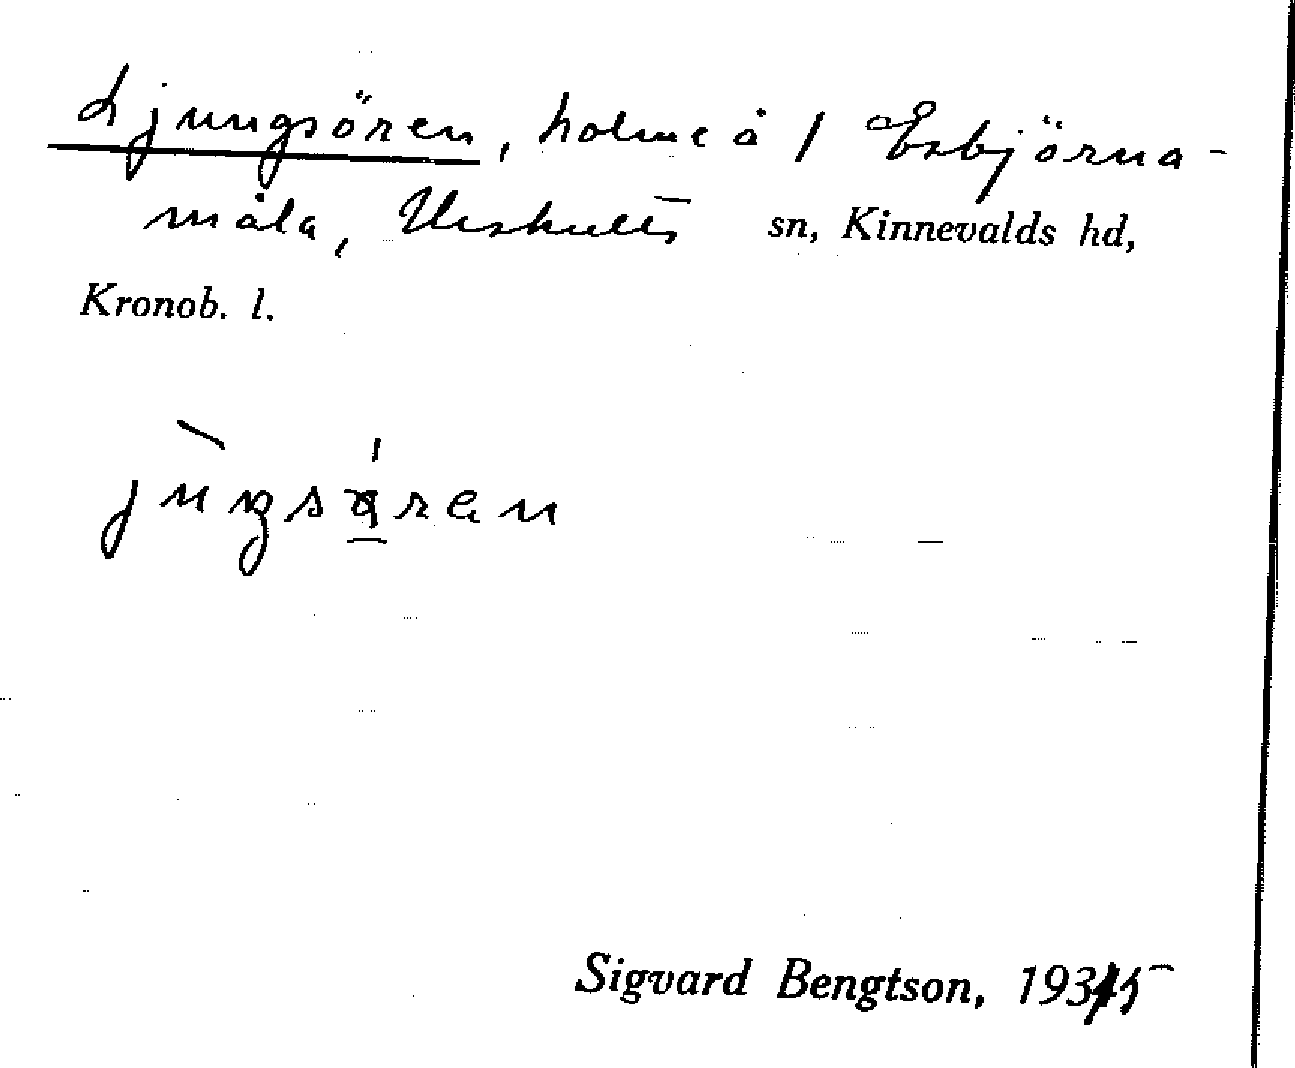 Ljungsören, holme å 1 Esbjörna-
måla, Urshults sn, Kinnevalds hd,
Kronob. l.
Sigvard Bengtson, 1935